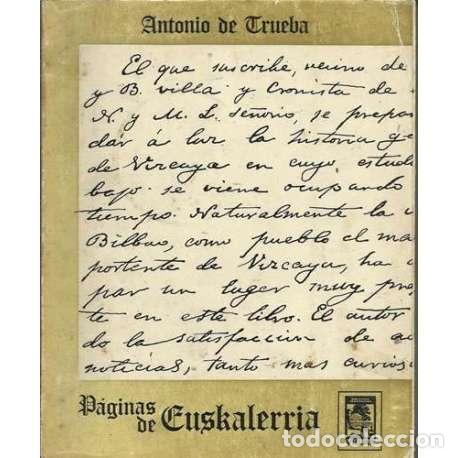 Antonio de Trueba
El que suscribe, vecino de
y B. villa y Cronista de
N. y M. L. señorio, se prepar
dár á luz la historia ge
de Vizcaya en cuyo estud
bajo se viene ocupando
tiempo. Naturalmente la
Bilbao, como pueblo el ma
portente de Vizcaya, ha
par un lugar muy pre
te en este libro. El autor
do la satisfaccion de
noticias, tanto mas curios
Páginas
de Euskalerria
todocoleccion.net